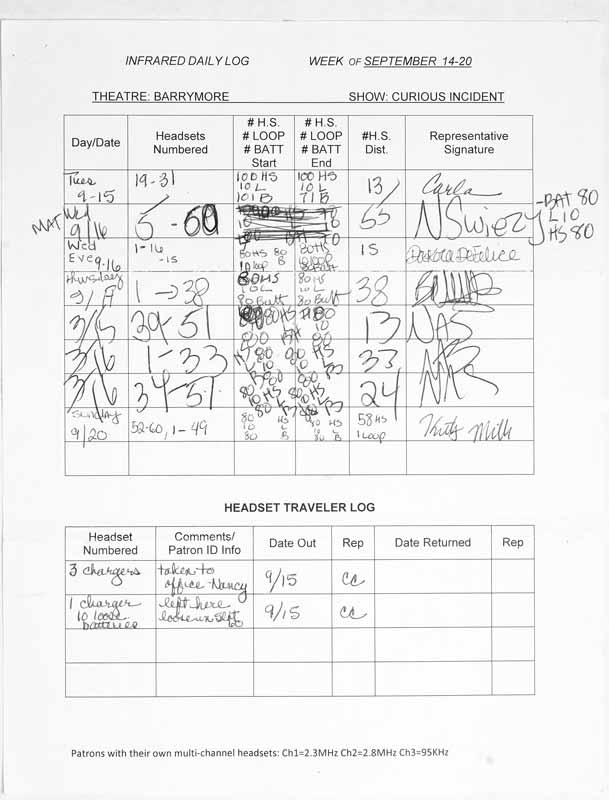 INFRARED DAILY LOG WEEK OF SEPTEMBER 14-20
THEATRE: BARRYMORE SHOW: CURIOUS INCIDENT
Day/Date Headsets Numbered # H.S. # LOOP # BATT Start # H.S. # LOOP # BATT End #H.S. Dist. Representative Signature
Tues 9-15 19-31 100 HS 10 L 101 B 100 HS 10 L 71 B 13 Carla
MAT Wed 9/16 5-60 55 NSwiezy -BAT 80 L 10 HS 80
Wed Eve 9-16 1-16 -15 80HS 80 10 loop B 80HS 10 loop 80 Batt 15
thursday 1→38 80HS 10L 80 Batt 80HS 10L 80 Batt 38
3/15 39-51 80 HS 80 13 NAS
3/16 1-33 80 HS 33 NAS
3/16 34-57 80 HS 10 L 80 B 24 NAS
Sunday 9/20 52-60, 1-49 80 HS 10 L 80 B 80 HS 10 L 80 B 58 HS 1 Loop
HEADSET TRAVELER LOG
Headset Numbered Comments/ Patron ID Info Date Out Rep Date Returned Rep
3 chargers taken to office - Nancy 9/15 cc
1 charger 10 loose batteries left here 9/15 cc
Patrons with their own multi-channel headsets: Ch1=2.3MHz Ch2=2.8MHz Ch3=95KHz